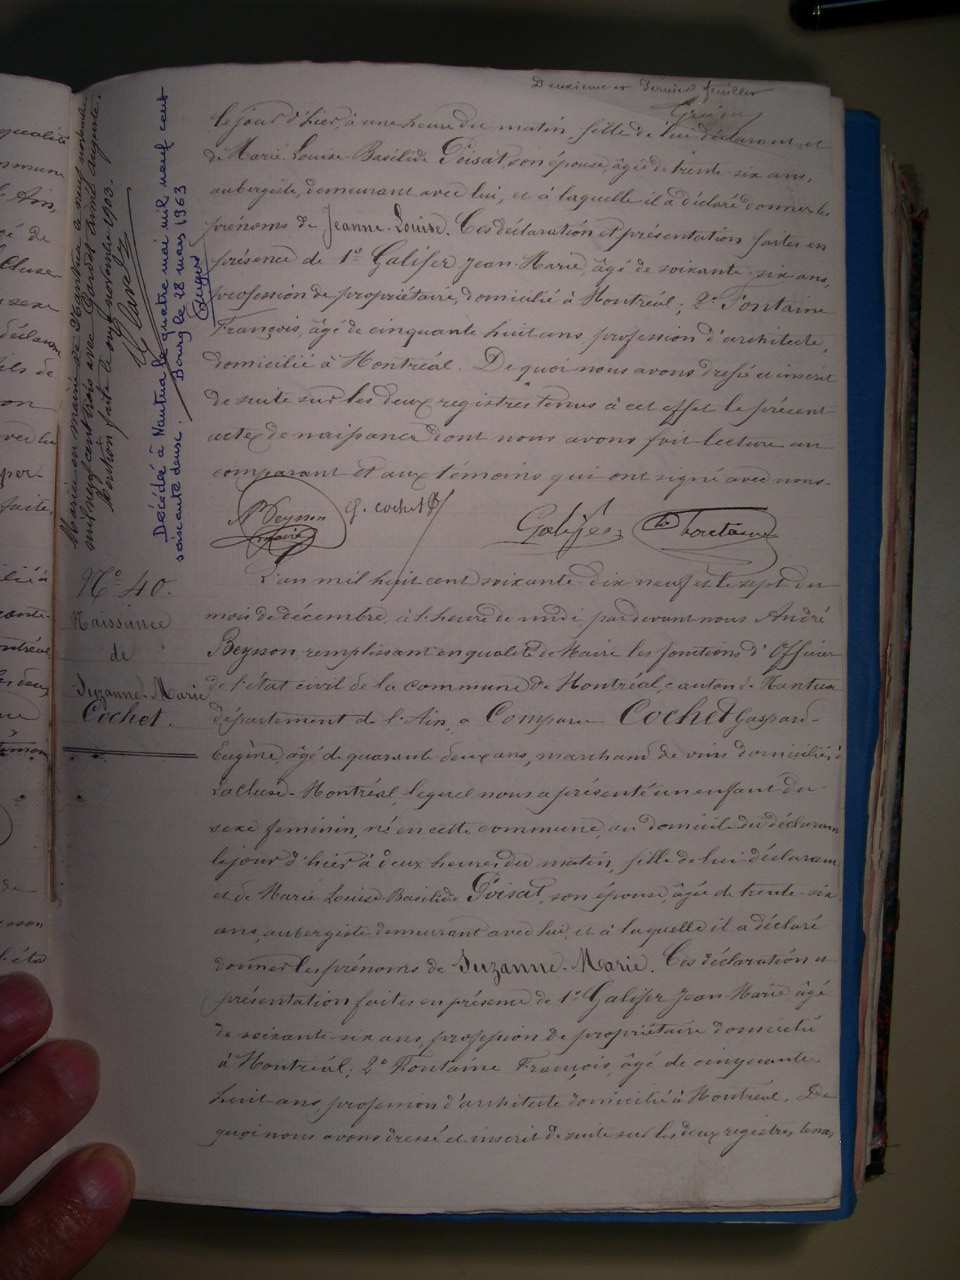 Deuxième et dernier feuillet
le jour d'hier, à une heure du matin, fille de lui déclarant, et
de Marie Louise Basilide Goisat, son épouse, âgée de trente six ans,
aubergiste, demeurant avec lui, et à laquelle il a déclaré donner les
prénoms de Jeanne-Louise. Ces déclaration et présentation faites en
présence de 1º Galifer Jean-Marie, âgé de soixante-six ans,
profession de propriétaire, domicilié à Montréal; 2º Fontaine
François, âgé de cinquante huit ans, profession d'architecte,
domicilié à Montréal. De quoi nous avons dressé et inscrit
de suite sur les deux registres tenus à cet effet le présent
acte de naissance dont nous avons fait lecture au
comparant et aux témoins qui ont signé avec nous.
A. Beysson
maire
G. Cochet
Galifer
Fontaine
Marié en mairie de
mil neuf cent trois avec
novembre 1903.
Décédée à Nantua le quatre mai mil neuf cent
soixante deux. Bourg le 28 mars 1963
Nº 40.
Naissance
de
Suzanne-Marie
Cochet.
L'an mil huit cent soixante-dix neuf et le sept du
mois de décembre, à l'heure de midi, par devant nous André
Beysson, remplissant en qualité de Maire les fonctions d'Officier
de l'état civil de la commune de Montréal, canton de Nantua
département de l'Ain, a Comparu Cochet Gaspard-
Eugène, âgé de quarante-deux ans, marchand de vins domicilié à
Lacluse-Montréal, lequel nous a présenté un enfant du
sexe féminin, né en cette commune, au domicile du déclarant
le jour d'hier à deux heures du matin, fille de lui déclarant
et de Marie-Louise-Basilide Goisat, son épouse, âgée de trente-six
ans, aubergiste demeurant avec lui, et à laquelle il a déclaré
donner les prénoms de Suzanne-Marie. Ces déclaration et
présentation faites en présence de 1º Galifer Jean-Marie âgé
de soixante-six ans profession de propriétaire domicilié
à Montréal; 2º Fontaine François, âgé de cinquante
huit ans, profession d'architecte domicilié à Montréal. De
quoi nous avons dressé et inscrit de suite sur les deux registres tenus